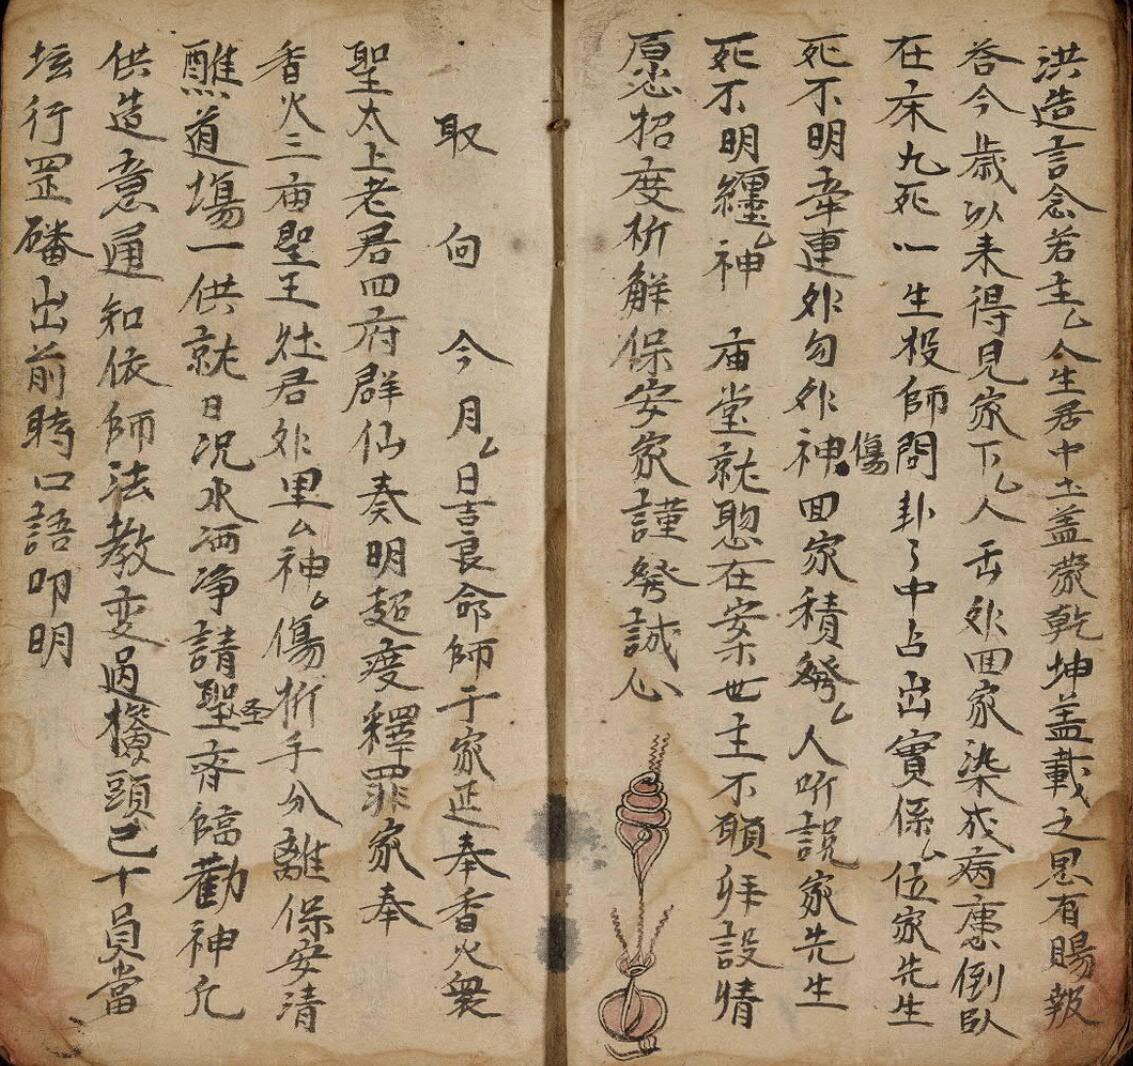 洪造言念若主厶人生居中土盖蒙乾坤盖載之恩有賜報
答今歲以来得見家下厶人缶外囬家染成病患倒臥
在床九死一生投師問卦之中占出實係厶位家先生
死不明牵連外勿外神傷囬家積發厶人听説家先生
死不明纒厶神 庙堂就愬在安求世主不願拜設情
愿招度祈解保安家謹發誠心
取向今月厶日吉良命師于家迋奉香火衆
聖太上老君四府群仙奏明超度釋罪家奉
香火二庙聖王社君外里厶神厶傷祈手分離保安清
醮道塲一供就日况水洒净請聖圣齐臨勸神凢
供造意通知依師法教变過橑頭已十員當
坛行罡磻出前時口語叩明